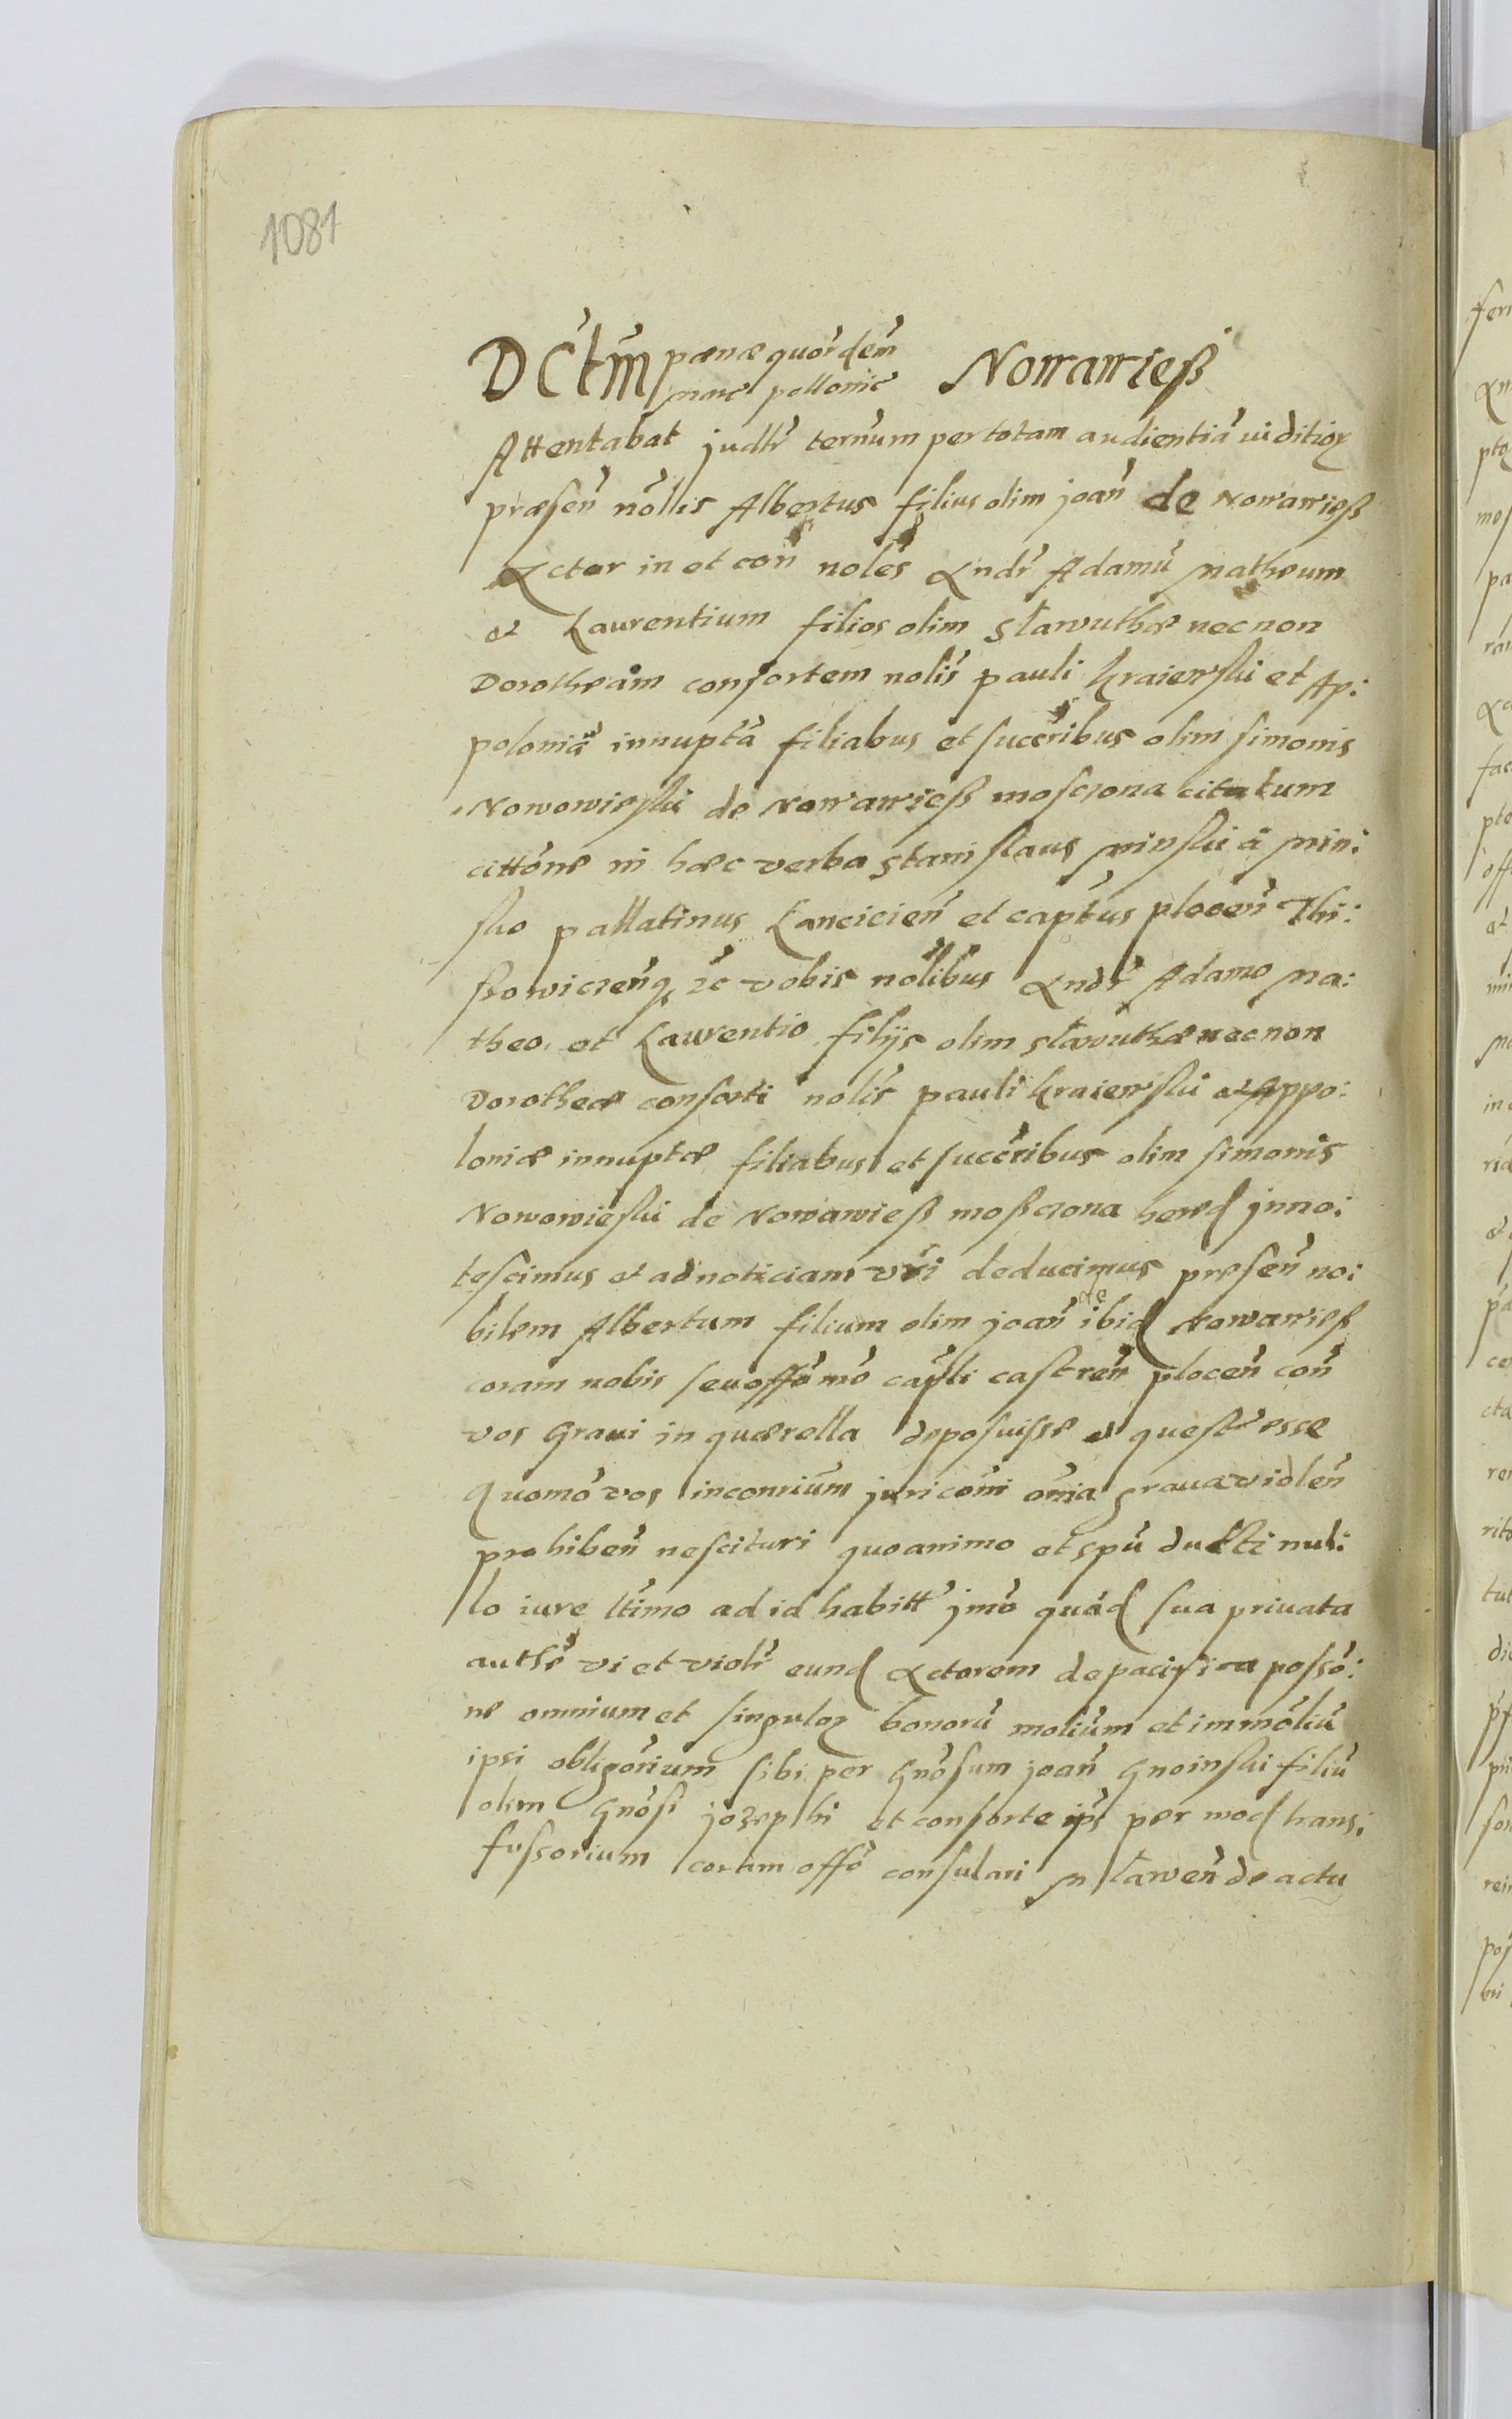 1081
DCtm pœnæ quordem Nowawieß
marc pollonic
Attentabat judtr ternum per totam audientia
præsen nollis Albertus filius olim joan de Nowawieß
Actor in et con noles Andr Adamu Matheum
et Laurentium filios olim Sławuthæ necnon
Dorotheam consortem nolis pauli Kraiewski et Ap:
polonia innupta filiabus et succribus olim simonis
Nowowieski de Nowawieß mosczona citatum
cittone in hæc verba Stanislaus Minski a Min:
sko pallatinus Lancicien et captus plocen Thi:
ßowiczenq zc vobis nolibus Andr Adamo Ma:
theo et Laurentio filijs olim Sławuthæ necnon
Dorotheæ consorti nolis pauli Kraiewski et Appo:
loniæ innuptæ filiabus et succribus olim simonis
Nowowieski de Nowawieß moßczona hered jnno:
tescimus et ad noticiam vri deducimus præsen no:
bilem Albertum filium olim joan ibid de Nowawieß
coram nobis seu offo mo capli castren plocen con
vos Graui in quærella deposuisse et quest esse
Quomo vos inconium juri comi omia graua violen
prohiben nescituri quo animo et spu ducti nul:
lo iure ltimo ad id habitt jmo quad sua priuata
authe vi et violr eund Actorem de pacifica posso:
ne omnium et singuloq bonoru molium et immoliu
ipsi obligorium sibi per Gnosum joan Gnoinski filiu
olim Gnosi jozephi et consorte ips per mod trans:
fussorium coram offo consulari Mławen de actu